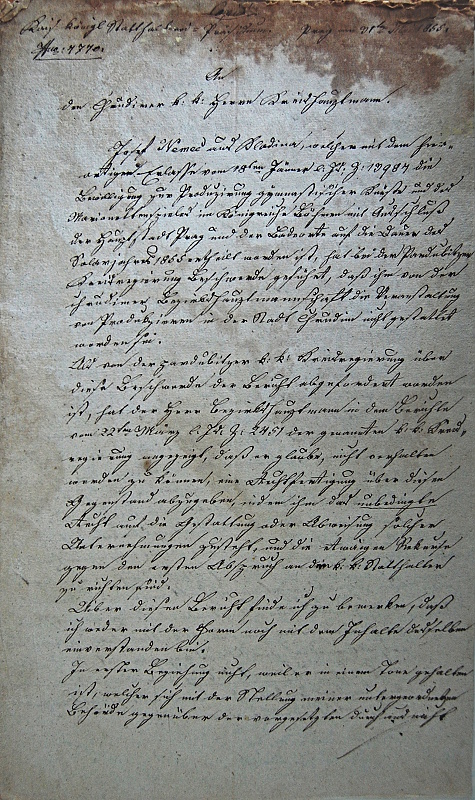 Kais. Königl. Statthalterei Präsidium. Prag am 31ten 1855.
Nro: 4770.
An
den Chrudimer k. k. Herrn Kreishauptmann.
Josef Nemec aus Kladina, welcher mit dem hier-
ortigen Erlasse vom 18ten Jänner l. Js. Z: 13984 die
Bewilligung zur Produzirung gymnastischer Künste und des
Marionettenspieles im Königreiche Böhmen mit Ausschluß
der Hauptstadt Prag und der Badeorte auf die Dauer des
Solarjahres 1855 ertheilt worden ist, hat bei der Pardubitzer
Kreisregierung Beschwerde geführt, daß ihm von der
Chrudimer Bezirkshauptmannschaft die Veranstaltung
von Produkzionen in der Stadt Chrudim nicht gestattet
worden sei.
Als von der Pardubitzer k. k. Kreisregierung über
diese Beschwerde der Bericht abgefordert worden
ist, hat der Herr Bezirkshauptmann in dem Berichte
vom 22ten März l. Js. Z: 2451 der genannten k. k. Kreis-
regierung angezeigt, daß er glaube, nicht verhalten
werden zu können, eine Rechtfertigung über diesen
Gegenstand abzugeben, indem ihm das unbedingte
Recht auf die Gestattung oder Abweisung solcher
Unternehmungen zusteht, und die etwaigen Rekurse
gegen den ersten Abspruch an die k. k. Statthalter
zu richten sind.
Über diesen Bericht finde ich zu bemerken, daß
ich weder mit der Form noch mit dem Inhalte desselben
einverstanden bin.
In erster Beziehung nicht, weil er in einem Tone gehalten
ist, welcher sich mit der Stellung einer untergeordneten
Behörde gegenüber der vorgesetzten durchaus nicht